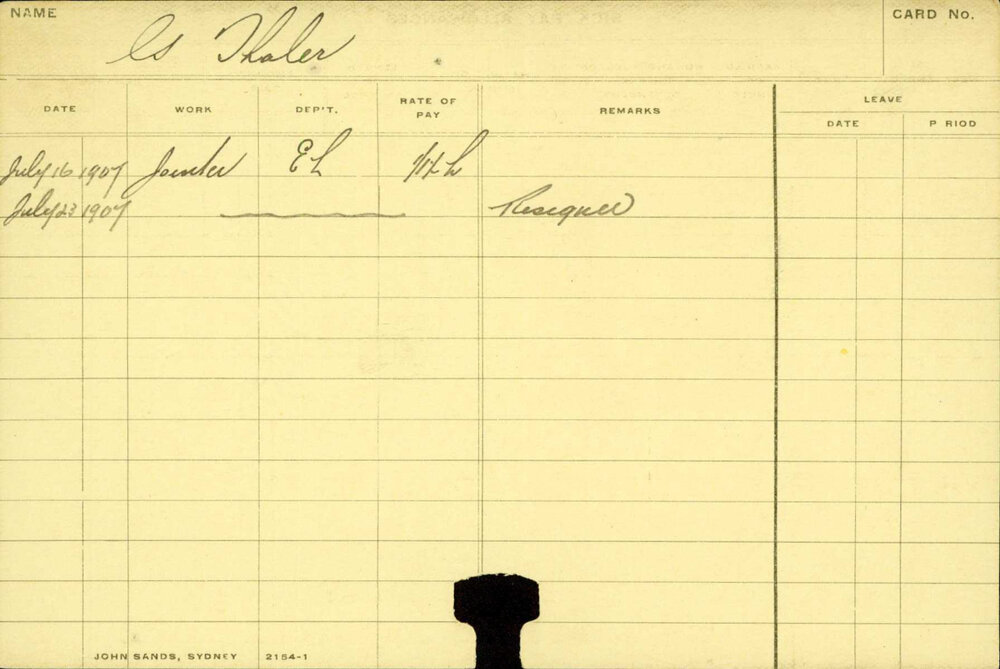 NAME
CARD No.
Thaler
DATE WORK DEP'T. RATE OF PAY REMARKS LEAVE
DATE P RIOD
July 16 1907 Jointer EL
July 23 1907 Resigned
JOHN SANDS, SYDNEY 2154-1